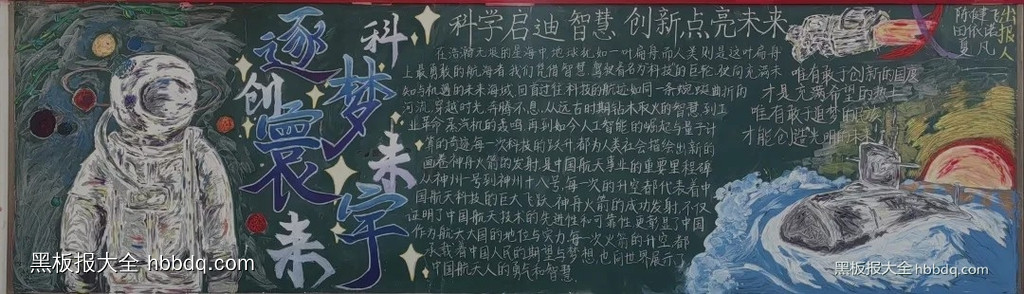 科
逐梦
创寰宇
来来
科学启迪智慧 创新点亮未来
在浩瀚无垠的星海中地球犹如一叶扁舟而人类则是这叶扁舟
上最勇敢的航海者我们凭借智慧驾驶着名为科技的巨轮驶向充满未
知与机遇的未来海域回首过往科技的航迹如同一条蜿蜒曲折的
河流穿越时光奔腾不息从远古时期钻木取火的智慧到工
业革命蒸汽机的轰鸣再到如今人工智能的崛起与量子计
算的奇迹每一次科技的跃升都为人类社会描绘出新的
画卷神舟火箭的发射是中国航天事业的重要里程碑
从神州一号到神州十八号每一次的升空都代表着中
国航天科技的巨大飞跃神舟火箭的成功发射不仅
证明了中国航天技术的先进性和可靠性更彰显了中国
作为航天大国的地位与实力每一次火箭的升空都
承载着中国人民的期望与梦想也向世界展示了
中国航天人的勇气和智慧
唯有敢于创新的国度
才是充满希望的热土
唯有敢于追梦的民族
才能创造光明的未来
出报人
飞诺凡
健依
陈田夏
黑板报大全 hbbdq.com
黑板报大全hbbdq.com